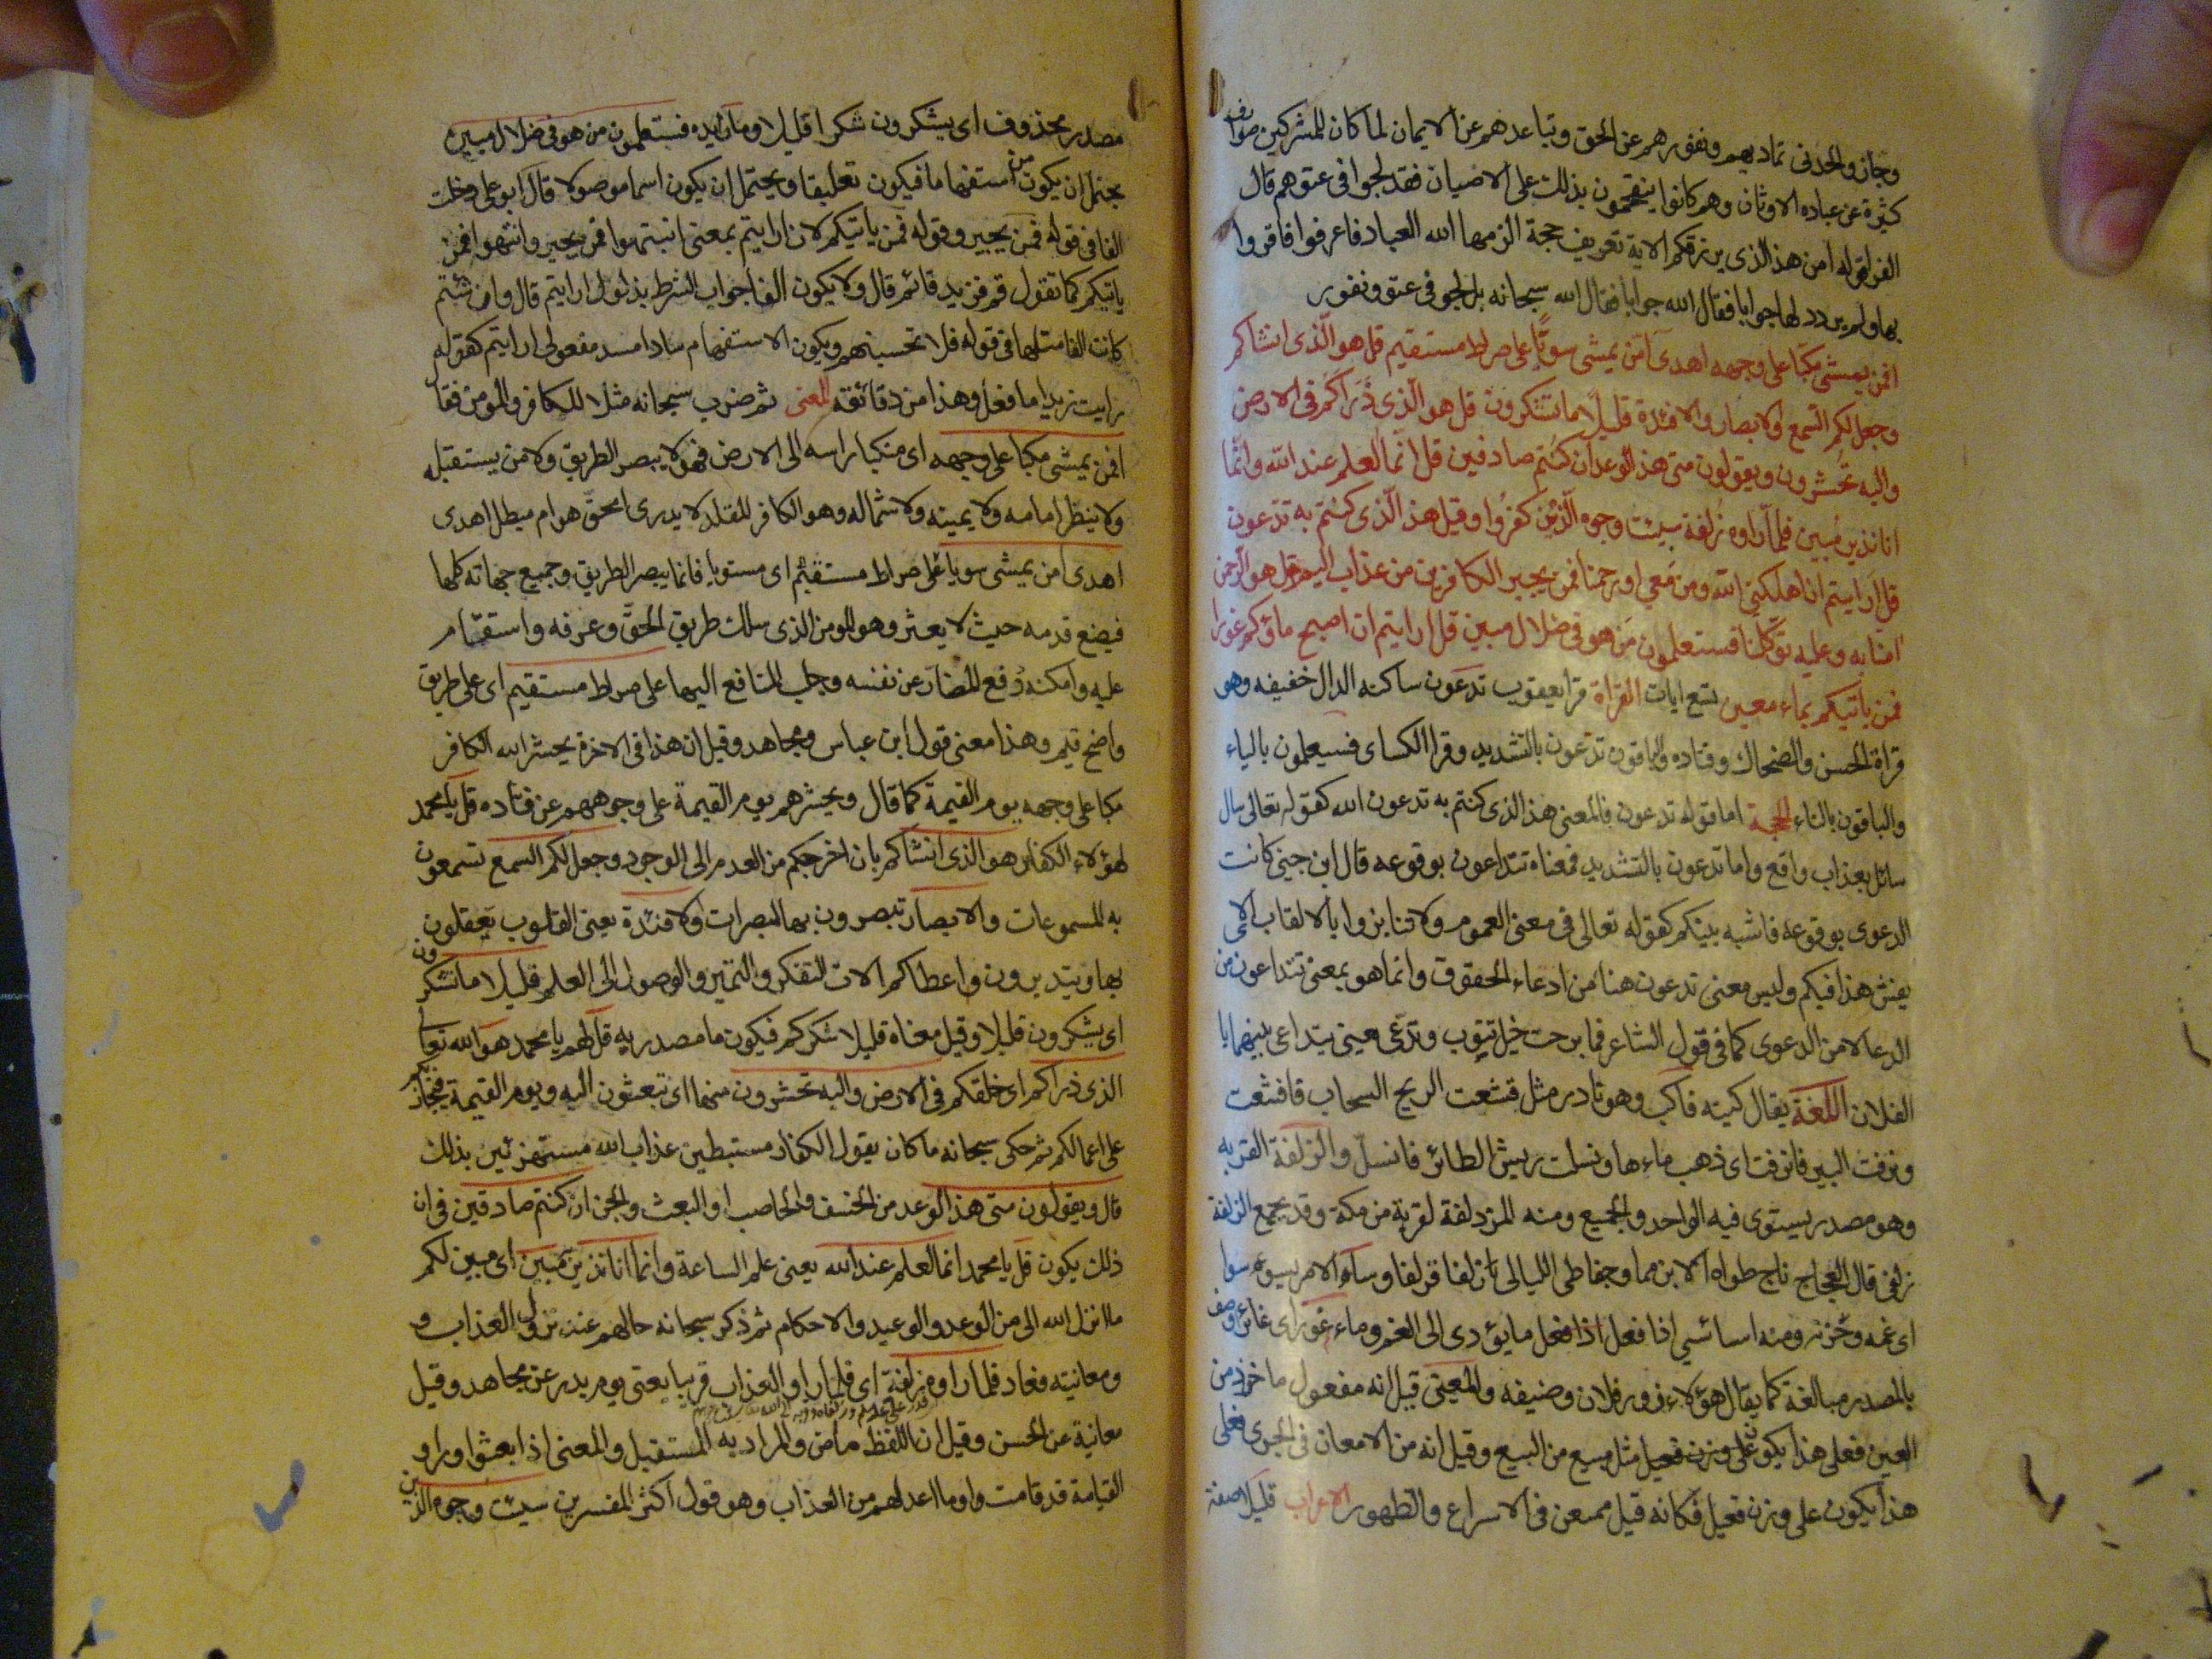 وجاز والحدنى تماديهم ونفورهم عن الحق وتباعدهم عن الايمان لما كان للمشركين صوارف
كثيرة عن عباده الاوثان وهم كانوا يتقحمون بذلك على الاصيان فقد لجوا فى عتوهم قال
الفر لقوله امن هذا الذى يرزقكم الاية تعريف حجة الزمها الله العباد فاعرفوا فاقروا
بها ولم يردد لها جوابا فقال الله جوابا فقال الله سبحانه بل لجو فى عتو ونفور
افمن يمشى مكبا على وجهه اهدى امن يمشى سويا على صراط مستقيم قل هو الذى انشاكم
وجعل لكم السمع والابصار والافئدة قليلا ما تشكرون قل هو الذى ذراكم فى الارض
واليه تحشرون ويقولون متى هذا الوعد ان كنتم صادقين قل انما العلم عند الله وانما
انا نذير مبين فلما راوه زلفة سيئت وجوه الذين كفروا وقيل هذا الذى كنتم به تدعون
قل ارايتم ان اهلكنى الله ومن معى او رحمنا فمن يجير الكافرين من عذاب اليم قل هو الرحمن
امنا به وعليه توكلنا فستعلمون من هو فى ضلال مبين قل ارايتم ان اصبح ماؤكم غورا
فمن ياتيكم بماء معين تسع ايات القراة قرا يعقوب تدعون ساكنه الدال خفيفه وهو
قراة الحسن والضحاك وقتاده والباقون تدعون بالتشديد وقرا الكساى فسيعلمون بالياء
والباقون بالتاء الحجة اما قوله تدعون فالمعنى هذا الذى كنتم به تدعون الله كقوله تعالى سال
سائل بعذاب واقع واما تدعون بالتشديد فمعناه تتداعون بوقوعه قال ابن جينى كانت
الدعوى بوقوعه فاشيه بينكم كقوله تعالى فى معنى العموم ولا تنابزوا بالالقاب اى لا
يفش هذا فيكم وليس معنى تدعون هنا من ادعاء الحقوق وانما هو بمعنى تتداعون من
الدعا لا من الدعوى كما فى قول الشاعر فما برحت خيل تثوب وتدعى يعنى تتداعى بينهما يا
الفلان اللغة يقال كببته فاكب وهو نادر مثل قشعت الريح السحاب فاقشعت
ونزفت البير فانزفت اى ذهب ماءها ونسلت ريش الطائر فانسل والزلفة القربه
وهو مصدر يستوى فيه الواحد والجميع ومنه المزدلفة لقربة من مكة وقد يجمع الزلفة
زلفى قال العجاج ناج طواه الاين مما وجفا طى الليالى زلفا فزلفا وساه الامر يسوء سوا
اى غمه وحزنه ومنه اسا يسى اذا فعل اذا فعل ما يؤدى الى الغم وماء غور اى غائر وصف
بالمصدر مبالغة كما يقال هؤلاء زور فلان وضيفه والمعين قيل انه مفعول ماخوذ من
العين فعلى هذا يكون على وزن فعيل مثل مبيع من البيع وقيل انه من الامعان فى الجرى فعلى
هذا يكون على وزن فعيل فكانه قيل ممعن فى الاسراع والظهور الاعراب قليلا صفة
مصدر محذوف اى يشكرون شكرا قليلا وما زايده فستعلمون من هو فى ضلال مبين
يحتمل ان يكون من استفهاما فيكون تعليقا ويحتمل ان يكون اسما موصولا قال ابو على دخلت
الفا فى قوله فمن يجير وقوله فمن ياتيكم لان ارايتم بمعنى انتبهوا فمن يجير وانتهوا فمن
ياتيكم كما تقول قم فزيد قائم قال ولا يكون الفا جواب الشرط مدلول ارايتم قال وان شئتم
كانت الفا مثلها فى قوله فلا تحسبنهم ويكون الاستفهام سادا مسد مفعولى ارايتم كقوله
رايت زيدا ما فعل وهذا من دقائقه المعنى ثم ضرب سبحانه مثلا للكافر والمومن فقا
افمن يمشى مكبا على وجهه اى منكبا راسه الى الارض فهو لا يبصر الطريق ولا من يستقبله
ولا ينظر امامه ولا يمينه ولا شماله وهو الكافر المقلد لا يدرى امحق هو ام مبطل اهدى
اهدى امن يمشى سويا على صراط مستقيم اى مستويا قائما يبصر الطريق وجميع جهاته كلها
فيضع قدمه حيث لا يعثر وهو المومن الذى سلك طريق الحق وعرفه واستقام
عليه وامكنه دفع المضار عن نفسه وجلب المنافع اليها على صراط مستقيم اى على طريق
واضح قيم وهذا معنى قول ابن عباس ومجاهد وقيل ان هذا فى الاخرة يحشر الله الكافر
مكبا على وجهه يوم القيمة كما قال ويحشرهم يوم القيمة على وجوههم عن قتاده قل يا محمد
لهؤلاء الكفار هو الذى انشاكم بان اخرجكم من العدم الى الوجود وجعل لكم السمع تسمعون
به المسموعات والابصار تبصرون بها المبصرات والافئدة يعنى القلوب تعقلون
بها وتتدبرون واعطاكم الات التفكر والتميز والوصول الى العلم قليلا ما تشكرون
اى يشكرون قليلا وقيل معناه قليلا شكركم فيكون ما مصدريه قل لهم يا محمد هو الله تعا
الذى ذراكم اى خلقكم فى الارض واليه تحشرون منها اى تبعثون اليه ويوم القيمة فيجازيكم
على اعمالكم ثم حكى سبحانه ما كان يقول الكفار مستبطين عذاب الله مستهزئين بذلك
قال ويقولون متى هذا الوعد من الخسف والحاصب او البعث والجزا ان كنتم صادقين فى ان
ذلك يكون قل يا محمد انما العلم عند الله يعنى علم الساعة وانما انا نذير مبين اى مبين لكم
ما انزل الله الى من الوعد والوعيد والاحكام ثم ذكر سبحانه حالهم عند نزول العذاب و
ومعاينته فعاد فلما راوه زلفة اى فلما راو العذاب قريبا يعنى يوم بدر عن مجاهد وقيل
معاينة عن الحسن وقيل ان اللفظ ماض والمراد به المستقبل والمعنى اذا بعثوا وراو
القيامة قد قامت واو ما اعد لهم من العذاب وهو قول اكثر المفسرين سيئت وجوه الذين